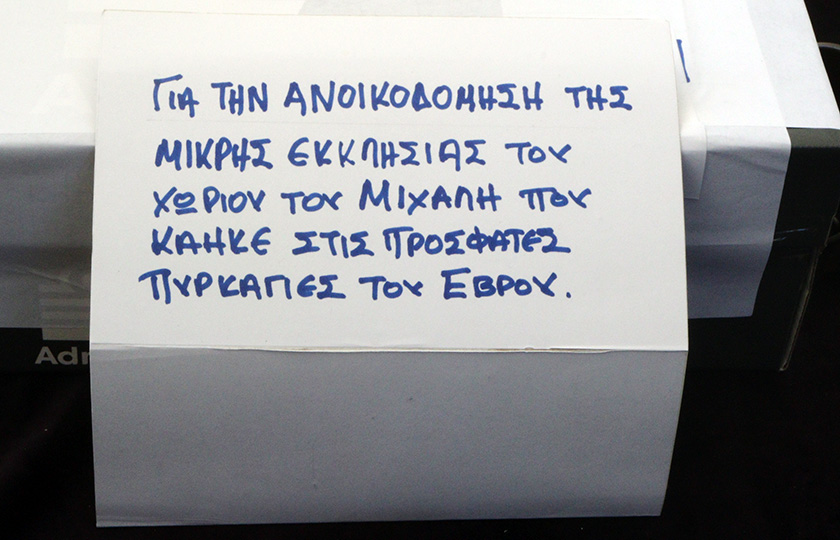 ΓΙΑ ΤΗΝ ΑΝΟΙΚΟΔΟΜΗΣΗ ΤΗΣ
ΜΙΚΡΗΣ ΕΚΚΛΗΣΙΑΣ ΤΟΥ
ΧΩΡΙΟΥ ΤΟΥ ΜΙΧΑΛΗ ΠΟΥ
ΚΑΗΚΕ ΣΤΙΣ ΠΡΟΣΦΑΤΕΣ
ΠΥΡΚΑΓΙΕΣ ΤΟΥ ΕΒΡΟΥ.